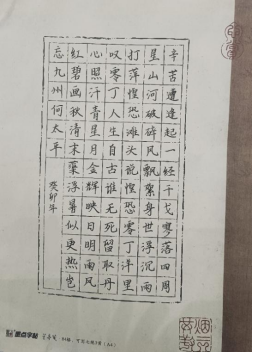 辛苦遭逢起一经干戈寥落四周
星山河破碎风飘絮身世浮沉雨
打萍惶恐滩头说惶恐零丁洋里
叹零丁人生自古谁无死留取丹
心照汗青星月金辉映日明雨风
红碧画秋清末浮暑似更热岂
忘九州何太平
癸卯年
墨点字帖